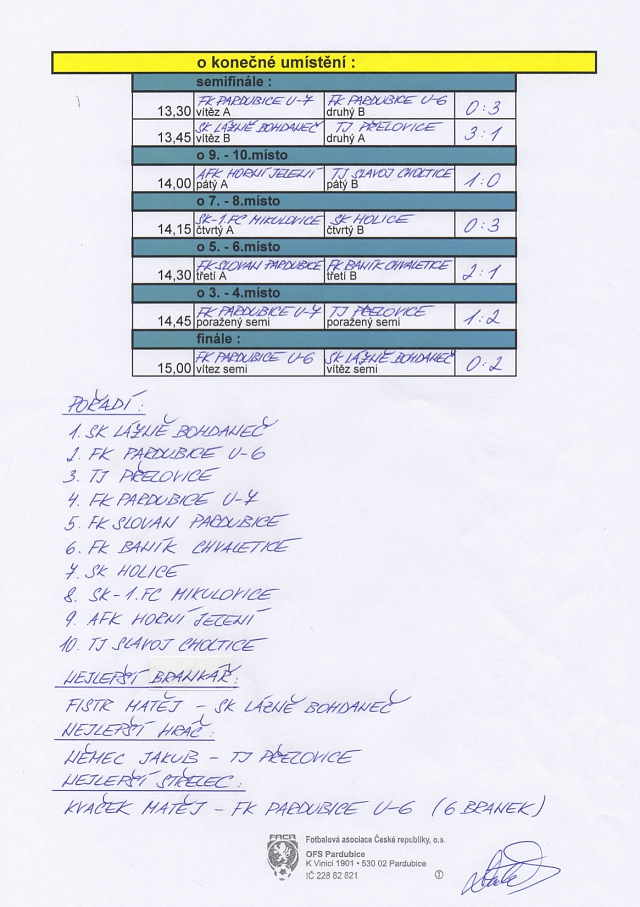 o konečné umístění :
semifinále :
13,30 FK PARDUBICE U-7 FK PARDUBICE U-6 0:3
vítěz A druhý B
13,45 SK LÁZNĚ BOHDANEČ TJ PŘELOVICE 3:1
vítěz B druhý A
o 9. - 10.místo
14,00 AFK HORNÍ JELENÍ TJ SLAVOJ CHOLTICE 1:0
pátý A pátý B
o 7. - 8.místo
14,15 SK-1.FC MIKULOVICE SK HOLICE 0:3
čtvrtý A čtvrtý B
o 5. - 6.místo
14,30 FK SLOVAN PARDUBICE FK BANÍK CHVALETICE 2:1
třetí A třetí B
o 3. - 4.místo
14,45 FK PARDUBICE U-7 TJ PŘELOVICE 1:2
poražený semi poražený semi
finále :
15,00 FK PARDUBICE U-6 SK LÁZNĚ BOHDANEČ 0:2
vítez semi vítěz semi
POŘADÍ:
1. SK LÁZNĚ BOHDANEČ
2. FK PARDUBICE U-6
3. TJ PŘELOVICE
4. FK PARDUBICE U-7
5. FK SLOVAN PARDUBICE
6. FK BANÍK CHVALETICE
7. SK HOLICE
8. SK-1.FC MIKULOVICE
9. AFK HORNÍ JELENÍ
10. TJ SLAVOJ CHOLTICE
NEJLEPŠÍ BRANKÁŘ:
FISTR MATĚJ - SK LÁZNĚ BOHDANEČ
NEJLEPŠÍ HRÁČ:
NĚMEC JAKUB - TJ PŘELOVICE
NEJLEPŠÍ STŘELEC:
KVAČEK MATĚJ - FK PARDUBICE U-6 (6 BRANEK)
FACR
Fotbalová asociace České republiky, o.s.
OFS Pardubice
K Vinici 1901 • 530 02 Pardubice
IČ 228 82 821 ①